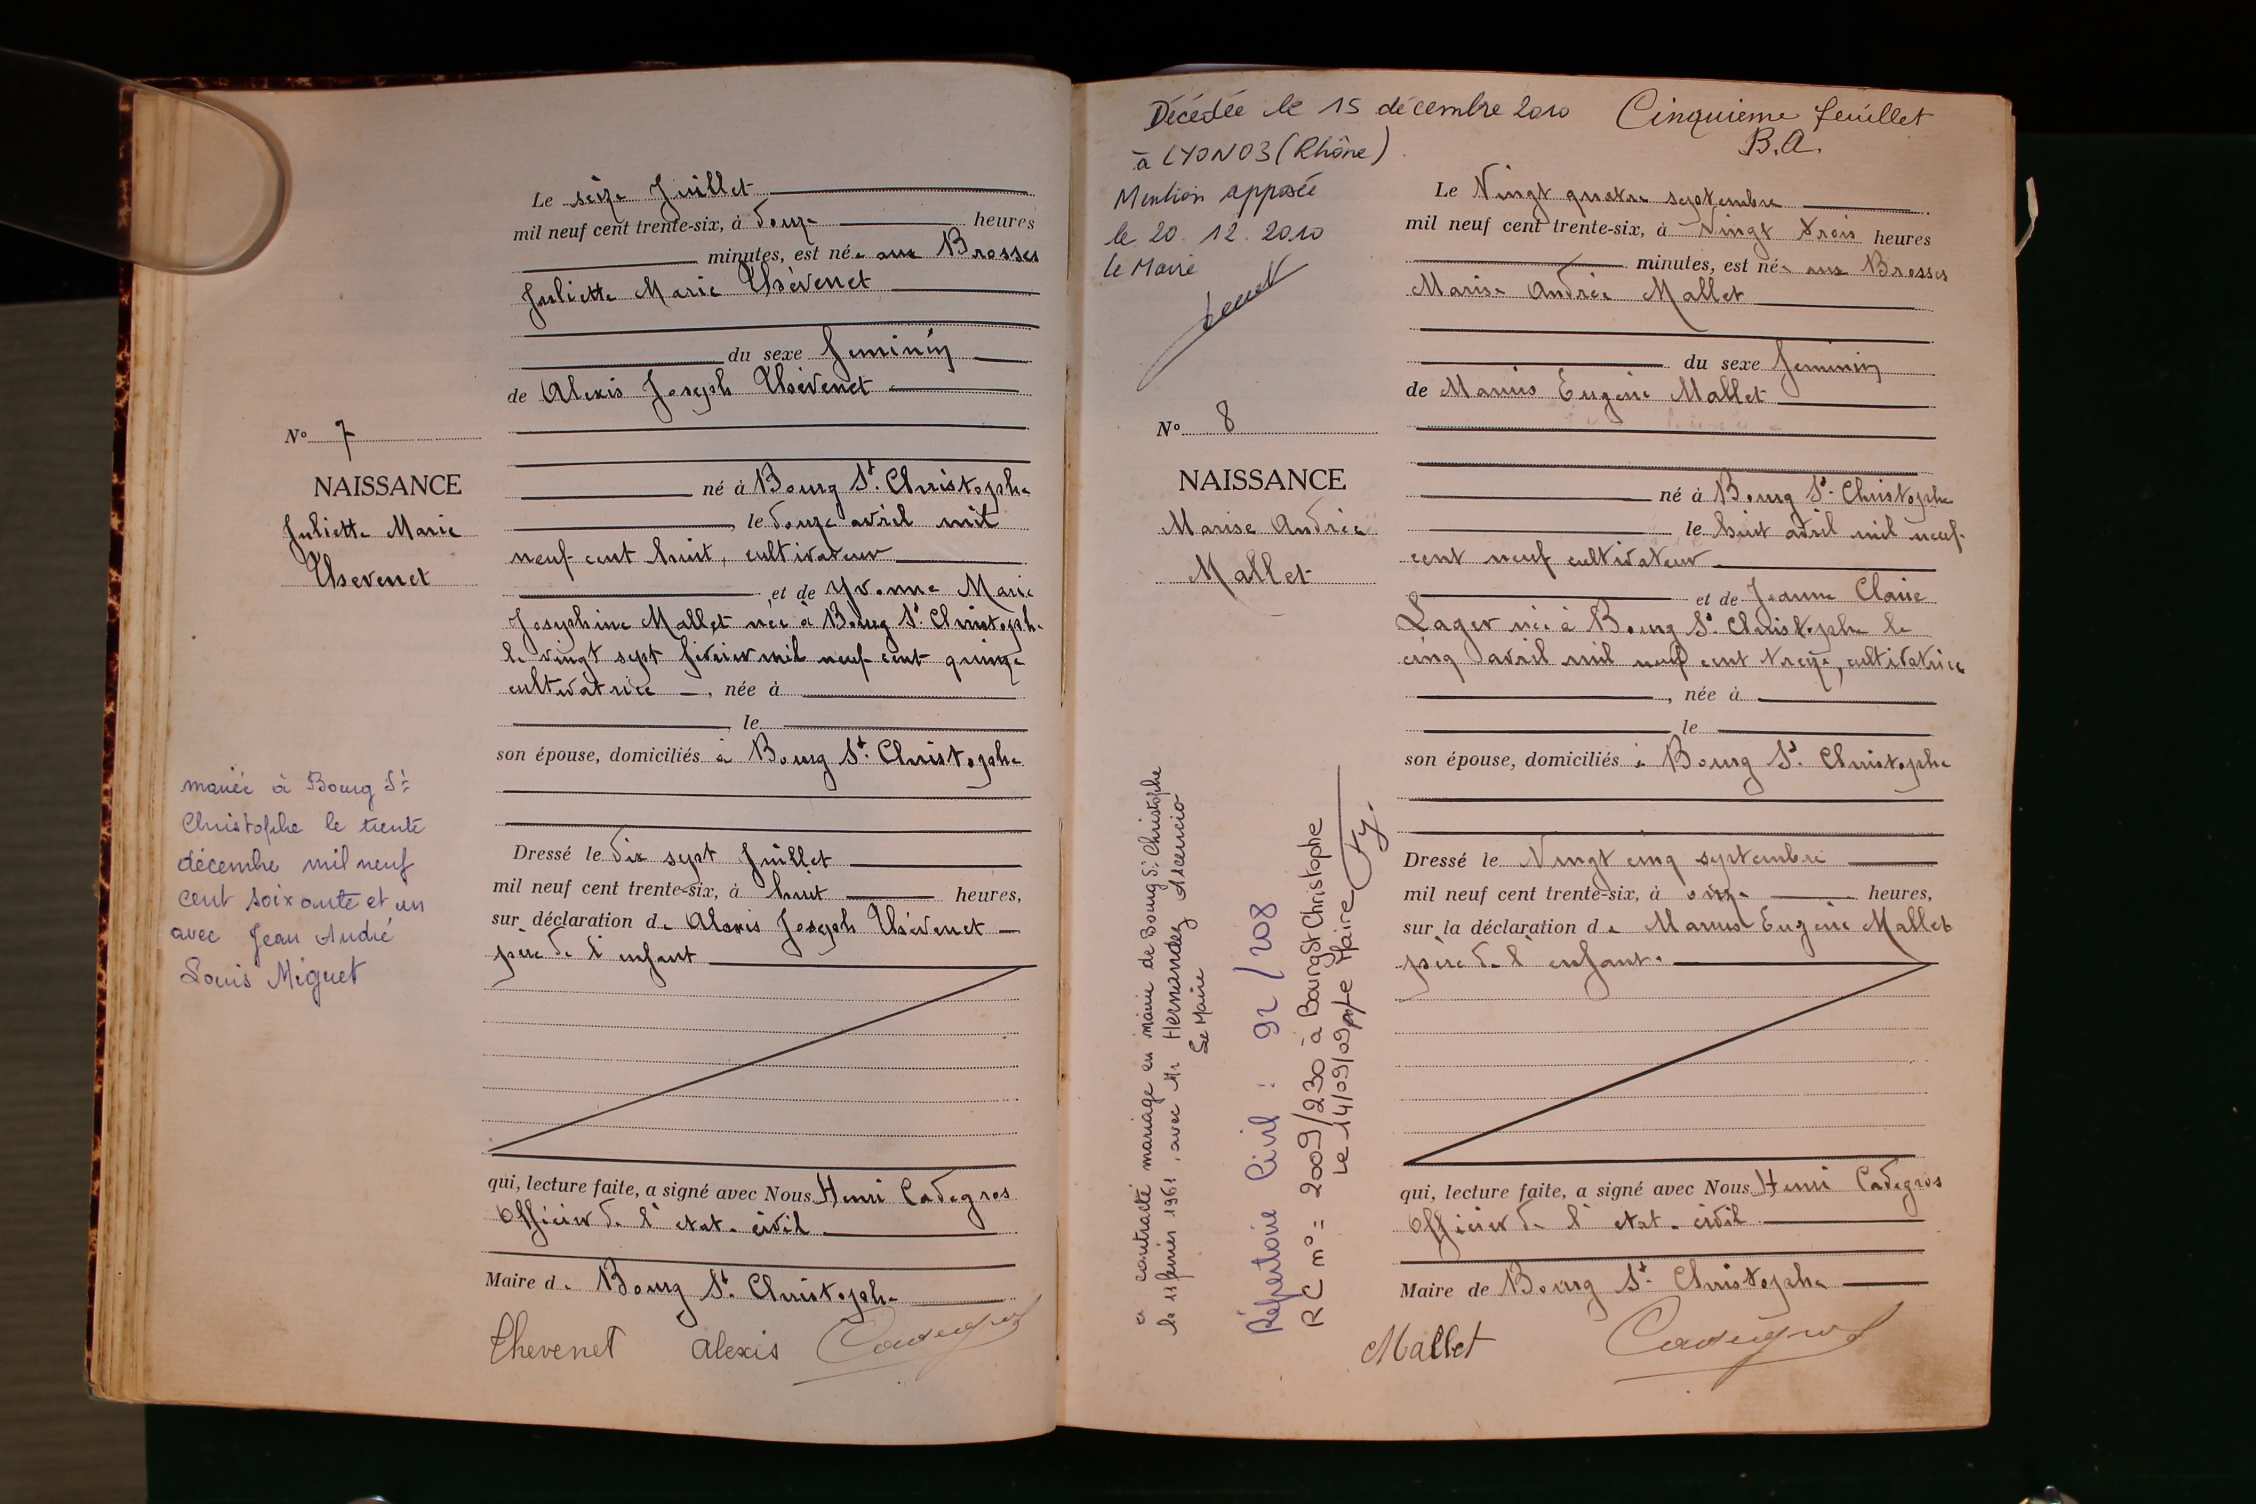 Le seize Juillet
mil neuf cent trente-six, à douze heures
minutes, est née aux Brosses
Juliette Marie Thévenet
du sexe féminin
de Alexis Joseph Thévenet
né à Bourg St. Christophe
le douze avril mil
neuf cent huit, cultivateur
et de Yvonne Marie
Joséphine Mallet née à Bourg St. Christophe
le vingt sept février mil neuf cent quinze
cultivatrice, née à
le
son épouse, domiciliés à Bourg St. Christophe
Dressé le dix sept Juillet
mil neuf cent trente-six, à huit heures,
sur déclaration de Alexis Joseph Thévenet
père de l'enfant
qui, lecture faite, a signé avec Nous Henri Cadegros
Officier de l'état-civil
Maire de Bourg St. Christophe
Thevenet Alexis Cadegros
No 7
NAISSANCE
Juliette Marie
Thevenet
mariée à Bourg St.
Christophe le trente
décembre mil neuf
cent soixante et un
avec Jean André
Louis Miguet
Cinquième feuillet
B.A.
Décédée le 15 décembre 2010
à LYON 03 (Rhône)
Mention apposée
le 20.12.2010
le Maire
No 8
NAISSANCE
Marise Andrée
Mallet
a contracté mariage en mairie de Bourg St. Christophe
le 11 février 1961, avec Mr Hernandez Ascencio
Le Maire
Répertoire Civil : 92/208
RC n° = 2009/230 à Bourg St Christophe
Le 14/09/09 P/Le Maire
Le Vingt quatre septembre
mil neuf cent trente-six, à Vingt trois heures
minutes, est née aux Brosses
Marise Andrée Mallet
du sexe féminin
de Marius Eugène Mallet
né à Bourg St. Christophe
le huit avril mil neuf
cent neuf cultivateur
et de Jeanne Claire
Lager née à Bourg St. Christophe le
cinq avril mil neuf cent treize, cultivatrice
, née à
le
son épouse, domiciliés à Bourg St. Christophe
Dressé le Vingt cinq septembre
mil neuf cent trente-six, à onze heures,
sur la déclaration de Marius Eugène Mallet
père de l'enfant.
qui, lecture faite, a signé avec Nous Henri Cadegros
Officier de l'état-civil
Maire de Bourg St. Christophe
Mallet Cadegros